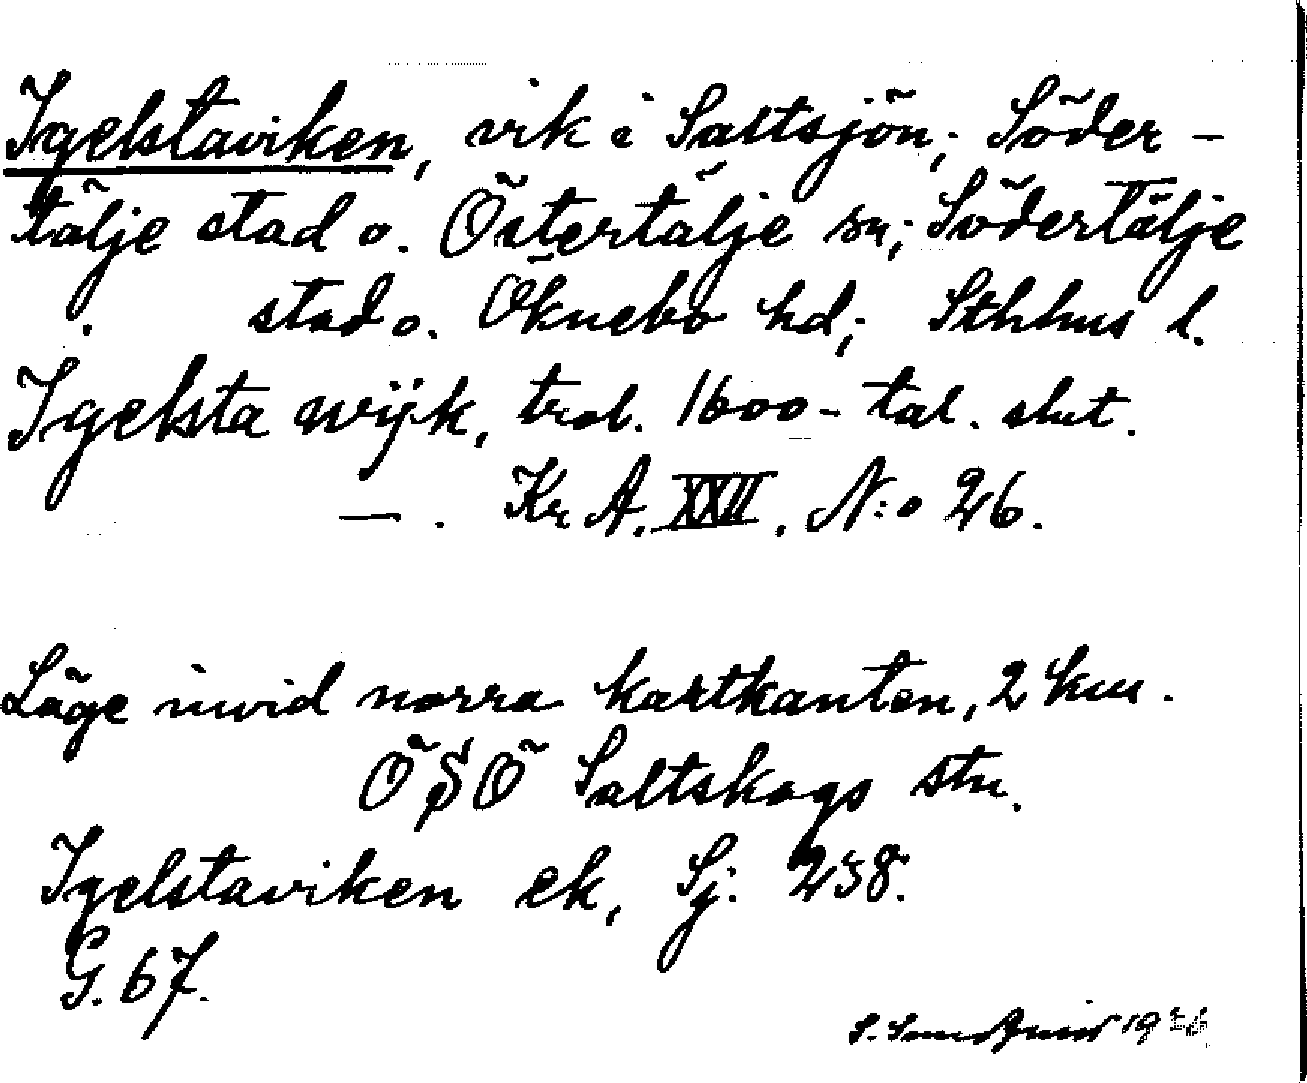 Igelstaviken, vik i Saltsjön; Söder-
tälje stad o. Östertälje sn; Södertälje
stad o. Öknebo hd; Sthlms l.
Igelsta wijk, trol. 1600-tal. slut.
—. Kr A. XXII. N:o 26.
Läge invid norra kartkanten, 2 km.
ÖSÖ Saltskogs stn.
Igelstaviken ek, Sj. 238.
G. 67.
S. 19